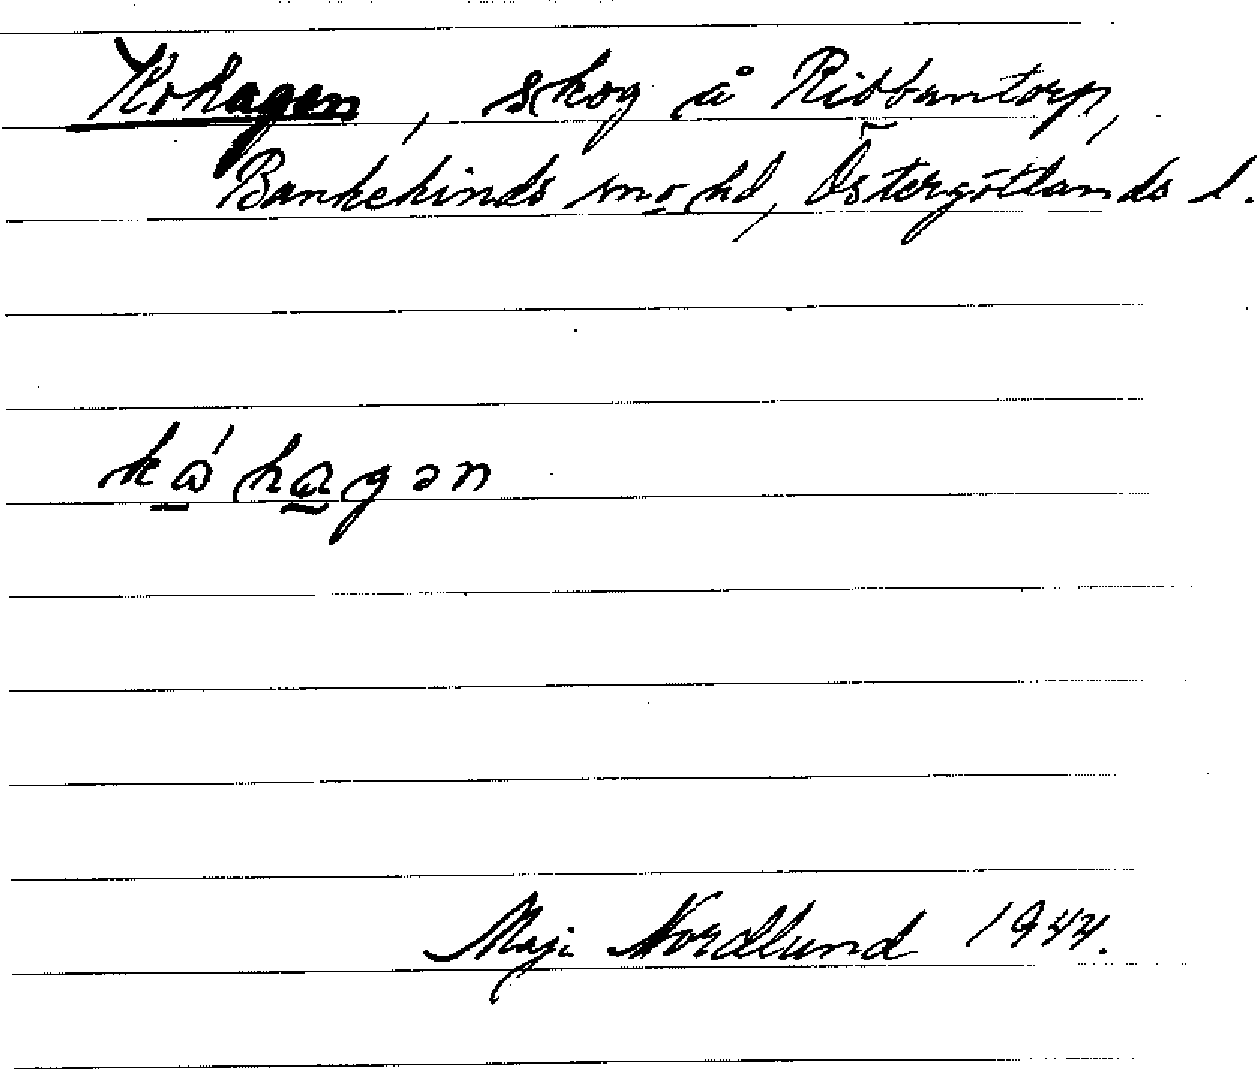 Kohagen, skog å Ribbantorp,
Bankekinds sn o hd, Östergötlands l.
kåhagən
Maji Nordlund 1944.